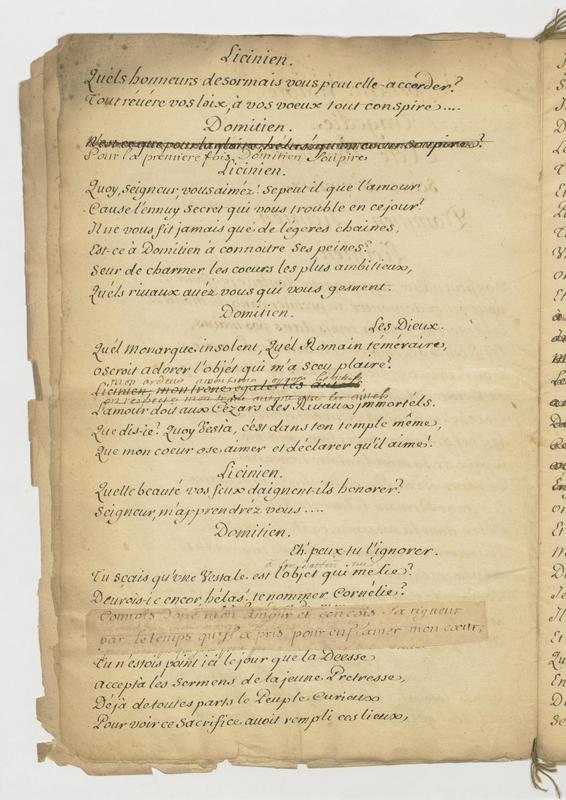 Licinien.
Quéls honneurs desormais vous peut elle accorder?
Tout révére vos loix, à vos voeux tout conspire....
Domitien.
N'est ce que pour la gloire, hélas! qu'un coeur soupire?
Pour la premiere fois, Domitien soupire
Licinien.
Quoy, Seigneur, vous aiméz! Se peut il que l'amour
Cause l'ennuy secret qui vous trouble en ce jour?
Il ne vous fit jamais que de légeres chaines,
Est-ce à Domitien à connoitre ses peines?
Seur de charmer les coeurs les plus ambitieux,
Quéls rivaux avéz vous qui vous gesnent.
Domitien.
Les Dieux.
Quél Monarque insolent, Quél Romain téméraire,
oseroit adorer l'objét qui m'a sceu plaire?
mon ardeur
Licinien, mon trône égale les autels
on respecte mon trône autant que les autels
L'amour doit aux Cézars des Rivaux immortéls.
Que dis-je? Quoy Vesta, c'ést dans ton temple même,
Que mon coeur ose aimer et déclarer qu'il aime!
Licinien.
Quelle beauté vos feux daignent-ils honorer?
Seigneur, m'apprendréz vous....
Domitien.
Eh! peux-tu l'ignorer.
Tu sçais qu'une Vestale est l'objet qui me lie?
Devrois-je encor, hélas! te nommer Cornélie?
Connois donc mon amour et conçois sa rigueur
par le temps qu'il a pris pour enflamer mon coeur,
Tu n'éstois point ici le jour que la Déesse
Accepta les Sermens de la jeune Pretresse,
Déjà de toutes parts le Peuple Curieux
Pour voir ce Sacrifice avoit rempli ces lieux,